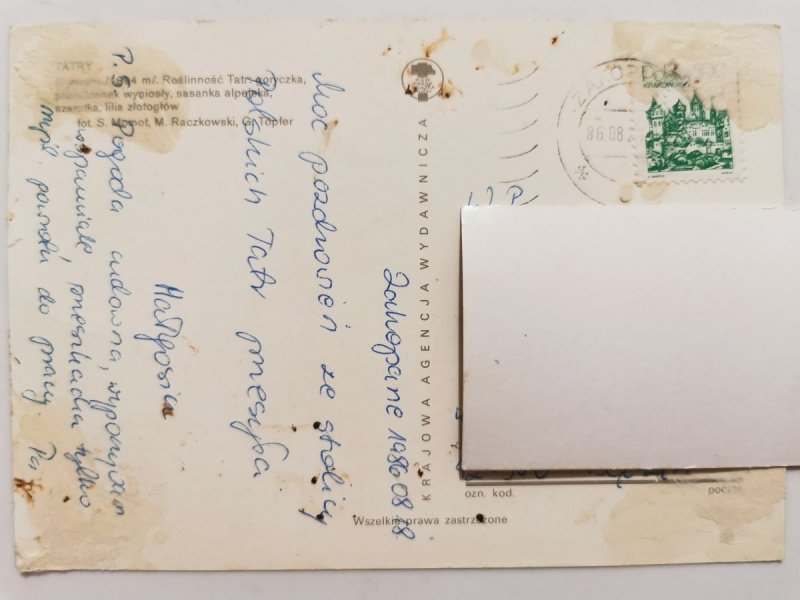 TATRY
m/. Roślinność Tatr: goryczka,
wyniosły, sasanka alpejska,
szarotka, lilia złotogłów
fot. S. Momot, M. Raczkowski, G. Töpfer
KRAJOWA AGENCJA WYDAWNICZA
Zakopane 1986 08 18.
Moc pozdrowień ze stolicy
Polskich Tatr przesyła
Małgosia
P.S. Pogoda cudowna, wypoczynek
wspaniały, tylko
myśl powrotu do pracy. Pa
Wszelkie prawa zastrzeżone
ozn. kod.
poczta
ZAKOP
86.08.
Polska